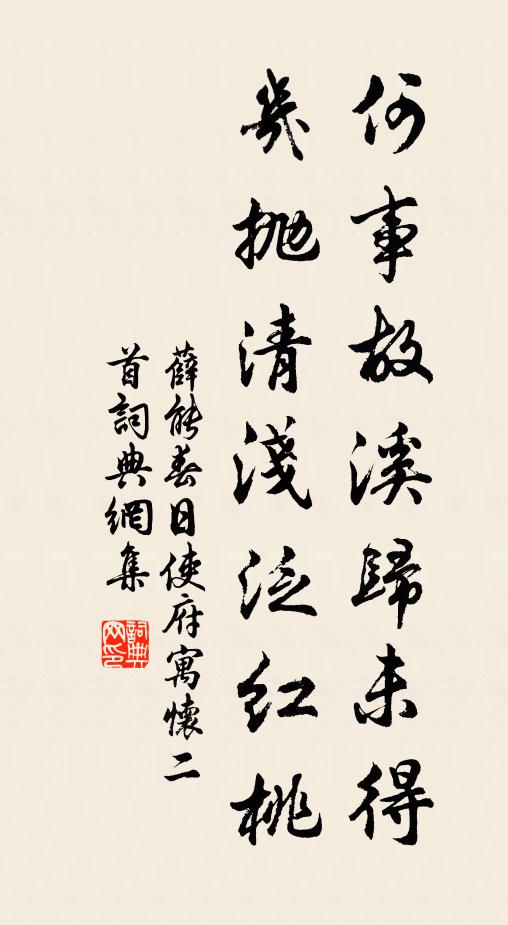 何事故溪歸未得
幾拋清淺泛紅桃
薛能春日使府寓懷二
首詞典網集
詞典網印